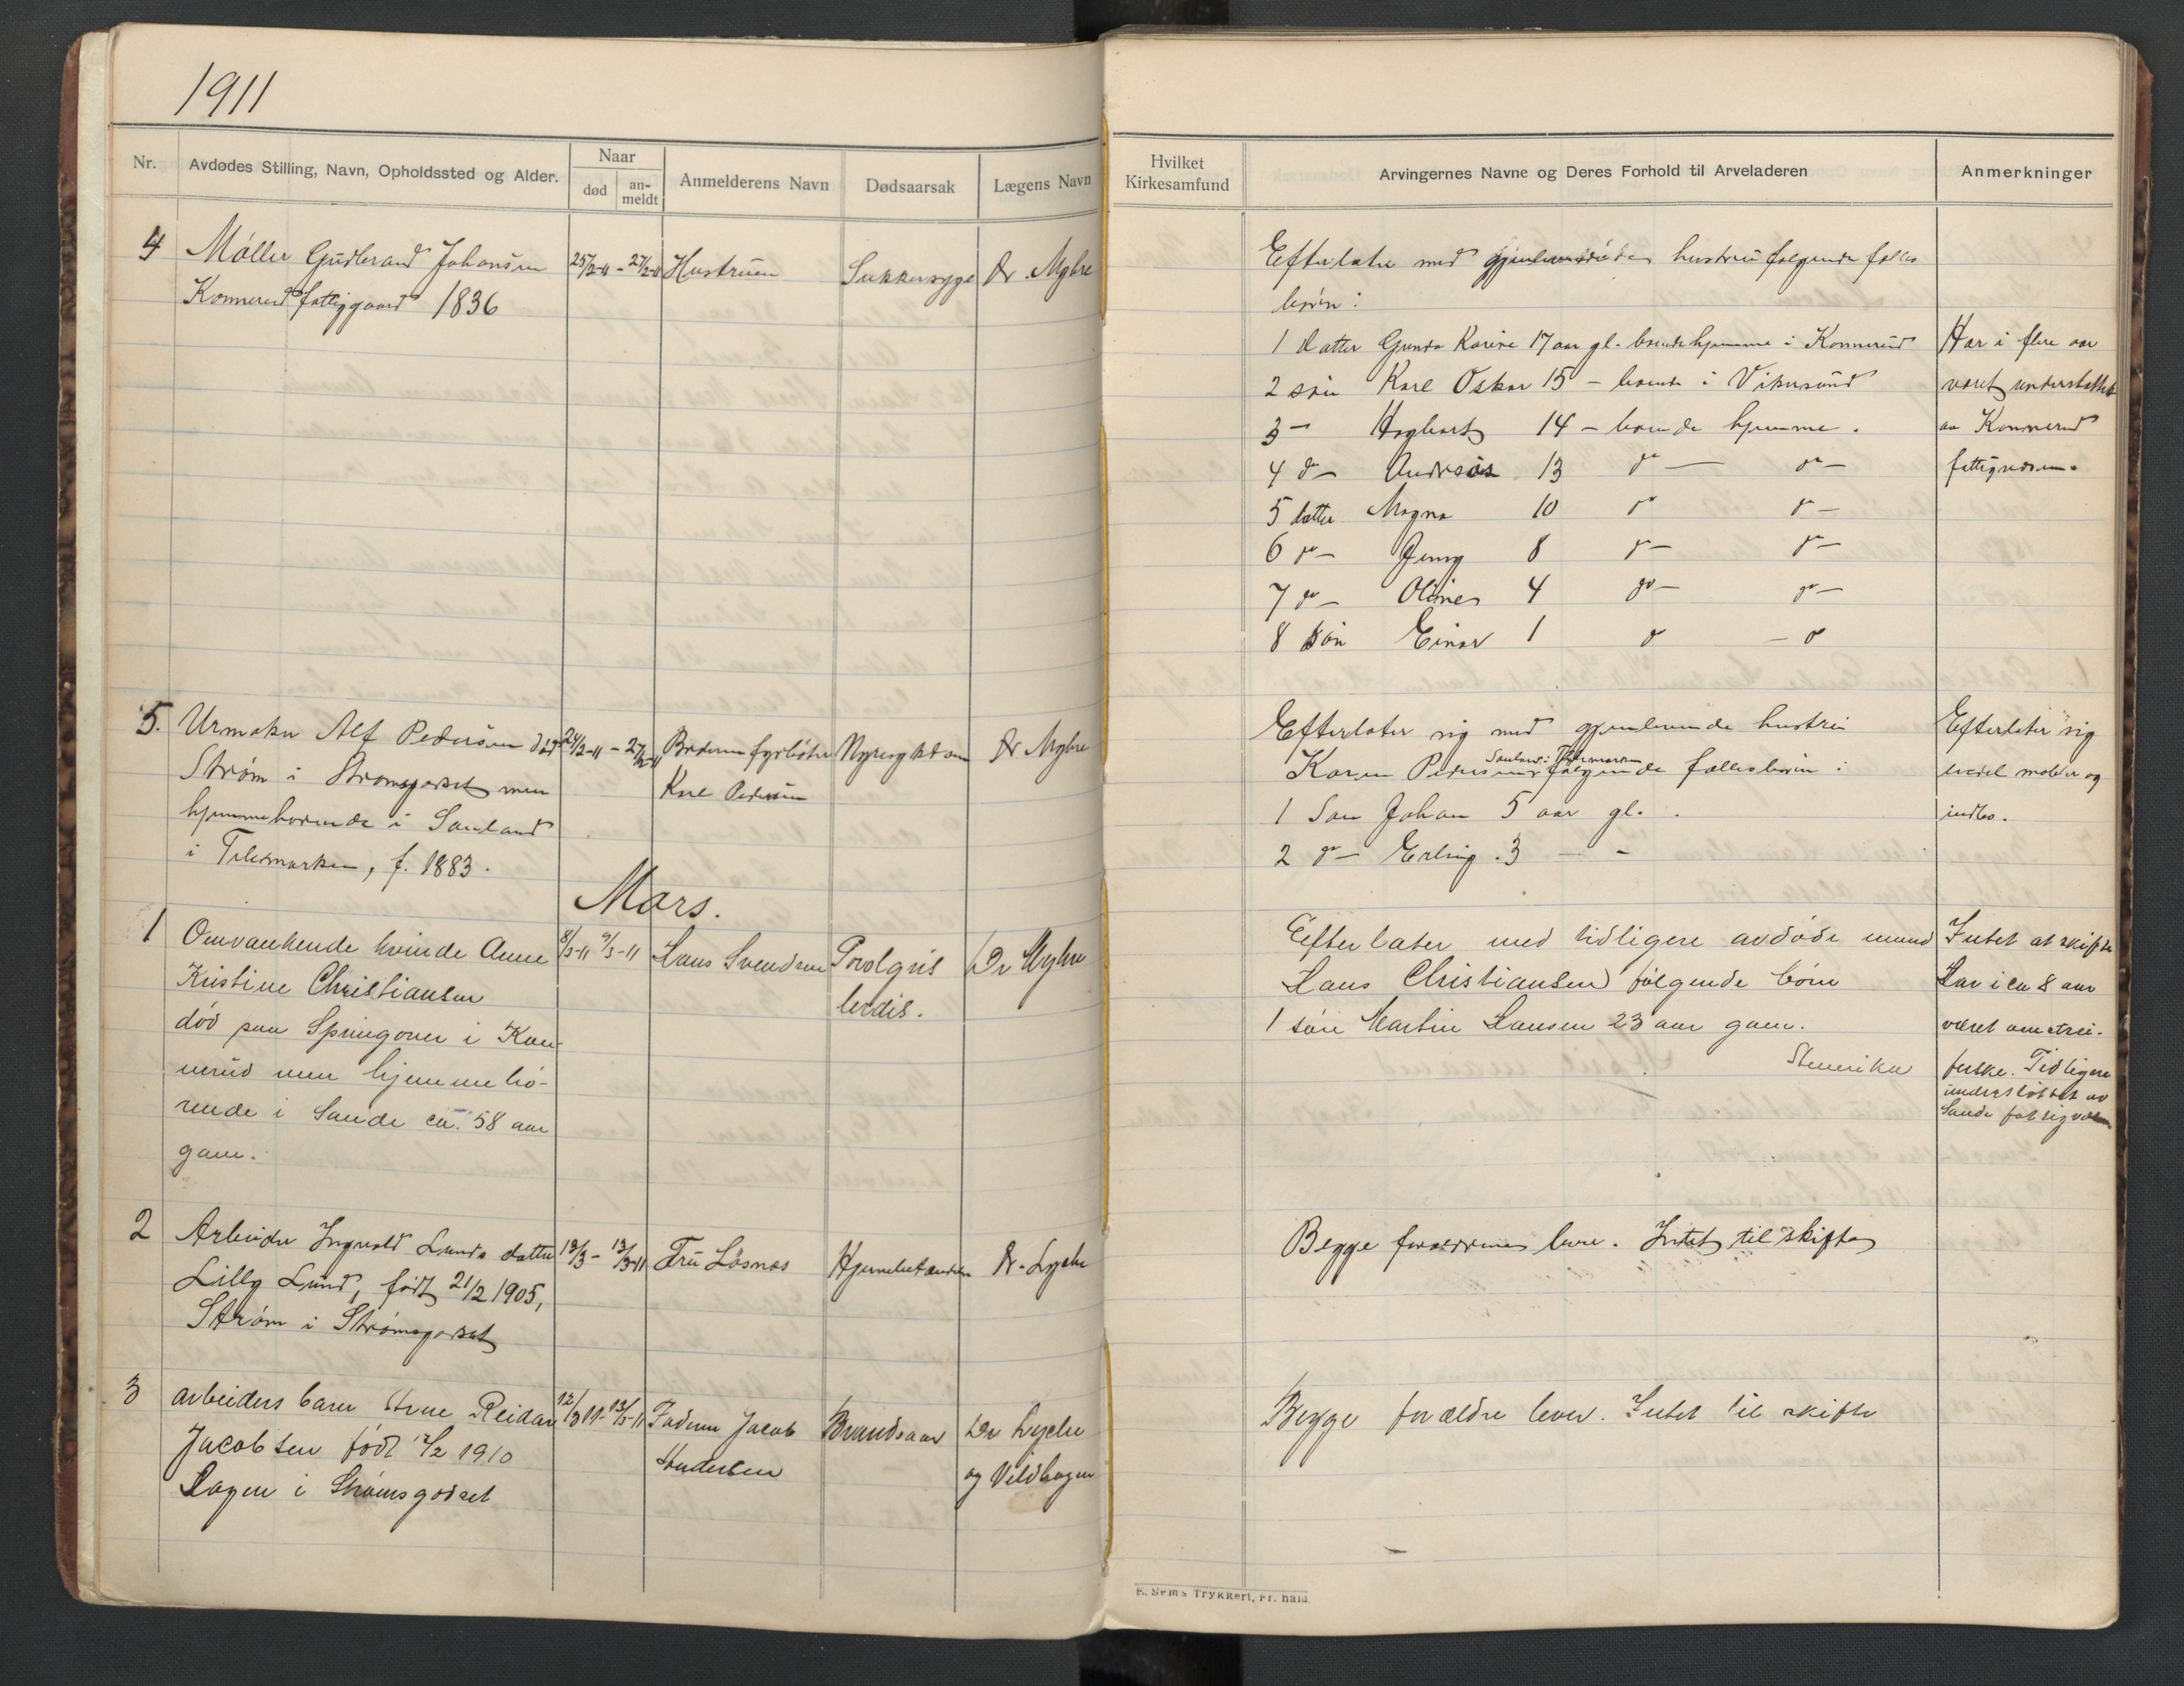 1911
Nr. Avdødes Stilling, Navn, Opholdssted og Alder. Naar død an-meldt Anmelderens Navn Dødsaarsak Lægens Navn
4 Møller Gudbrand Johansen 25/2-11 - 27/2-11 Hustruen Sukkersyge Dr. Myhre
Konnerud fattiggaard 1836
5. Urmaker Alf Pedersen død 24/2-11 - 27/2-11 Broderen fyrbøter Nyresygdom Dr Myhre
Strøm i Strømsgodset men Karl Pedersen
hjemmehørende i Sauland
i Telemarken, f. 1883.
Mars.
1 Omvankende kvinde Anne 8/3-11 9/3-11 Hans Svendsen Dr Myhre
Kristine Christiansen
død paa Springoven i Kon-
nerud men hjemmehø-
rende i Sande ca. 58 aar
gam.
2 Arbeider Ingvald Lunds datter 12/3 - 13/3-11 Fru Løsnæs Dr. Lyche
Lilly Lund, født 21/2 1905,
Strøm i Strømsgodset
3 arbeiders barn Arne Reidar 12/3 11 - 13/3-11 Faderen Jacob Brandsaar Dr Lyche
Jacobsen født 12/2 1910 Andersen og Vildhagen
Hagen i Strømsgodset
Hvilket Kirkesamfund Arvingernes Navne og Deres Forhold til Arveladeren Anmerkninger
Efterlater med gjenlevende hustru følgende fælles
børn:
1 datter Gunda Karine 17 aar gl. boende hjemme i Konnerud Har i flere aar
2 søn Karl Oskar 15 - boende i Vikersund været understøttet
3 - Hagbart 14 - boende hjemme. av Konnerud
4 do - Andreas 13 do - do - fattigvæsen.
5 datter Magna 10 do do -
6 do - Jenny 8 do - do -
7 do - Oline 4 do - do -
8 søn Einar 1 do - do
Efterlater sig med gjenlevende hustru Efterlater sig
Sauland i Telemarken
Karen Pedersen følgende fællesbørn: endel møbler og
1 Søn Johan 5 aar gl. indbo.
2 do - Erling. 3 - -
Efterlater med tidligere avdøde mand Intet at skifte
Hans Christiansen følgende børn Har i ca 8 aar
1 søn Martin Hansen 23 aar gam. været omstrei-
ferske. Tidligere
understøttet av
Sande fattigvæsen
Begge forældrene lever. Intet til skifte
Begge forældre lever. Intet til skifte
E. Sem's Trykkeri, Fr.hald.